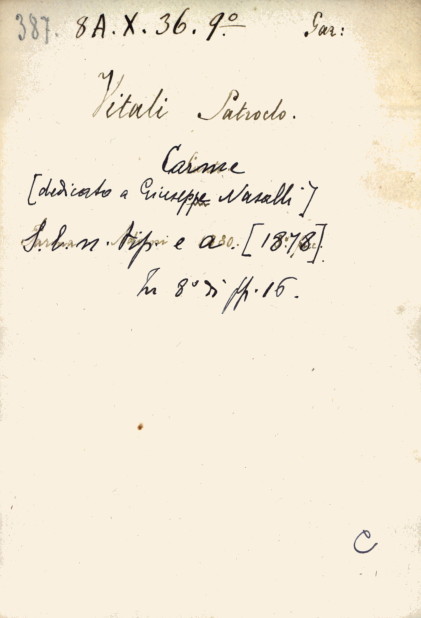 387. 8A.X.36.9º Gar:
Vitali Patroclo.
Carme
[dedicato a Giuseppe Nasalli]
S. l. n. tip e a. [1878].
In 8º di pp. 16.
C